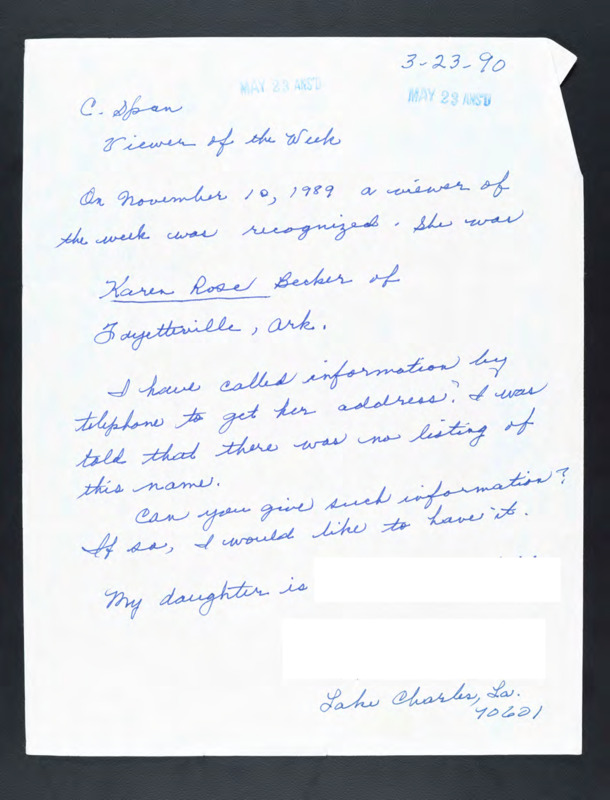 3-23-90
MAY 23 ANS'D
MAY 23 ANS'D
C. Span
Viewer of the Week
On November 10, 1989 a viewer of
the week was recognized. She was
Karen Rose Becker of
Fayetteville, Ark.
I have called information by
telephone to get her address? I was
told that there was no listing of
this name.
Can you give such information?
If so, I would like to have it.
My daughter is
Lake Charles, La.
70601